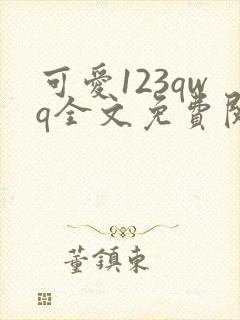 可愛123qw
q全文免費閱
董鎮東